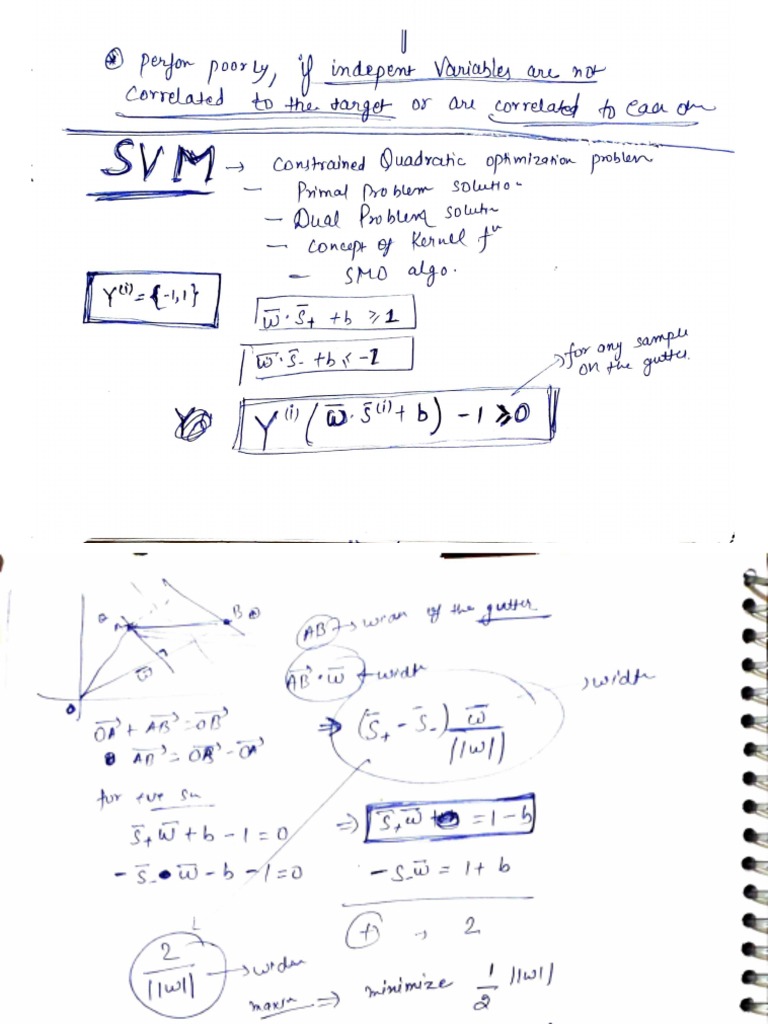 ⊛ perfon poorly, if indepent Variables are not
Correlated to the target or are correlated to each
SVM → Constrained Quadratic optimization problem
- Primal Problem solution
- Dual Problem solutn
- Concept of Kernel fⁿ
- SMO algo.
Y⁽ⁱ⁾ = {-1,1}
w̅·S̅₊ + b ≥ 1
w̅·S̅₋ + b ≤ -1
for any sample
on the gutter.
Y⁽ⁱ⁾ (w̅·S̅⁽ⁱ⁾ + b) - 1 ≥ 0
A B
w̅
O
AB → of the gutter
AB⃗ · w̅ → width
→ width
OA⃗ + AB⃗ = OB⃗
AB⃗ = OB⃗ - OA⃗
⇒ (S̅₊ - S̅₋) w̅ / ||w||
for +ve
S̅₊w̅ + b - 1 = 0 ⇒ S̅₊w̅ = 1 - b
- S̅₋·w̅ - b - 1 = 0
- S₋w̅ = 1 + b
(+) , 2
2 / ||w|| →
⇒ minimize 1/2 ||w||